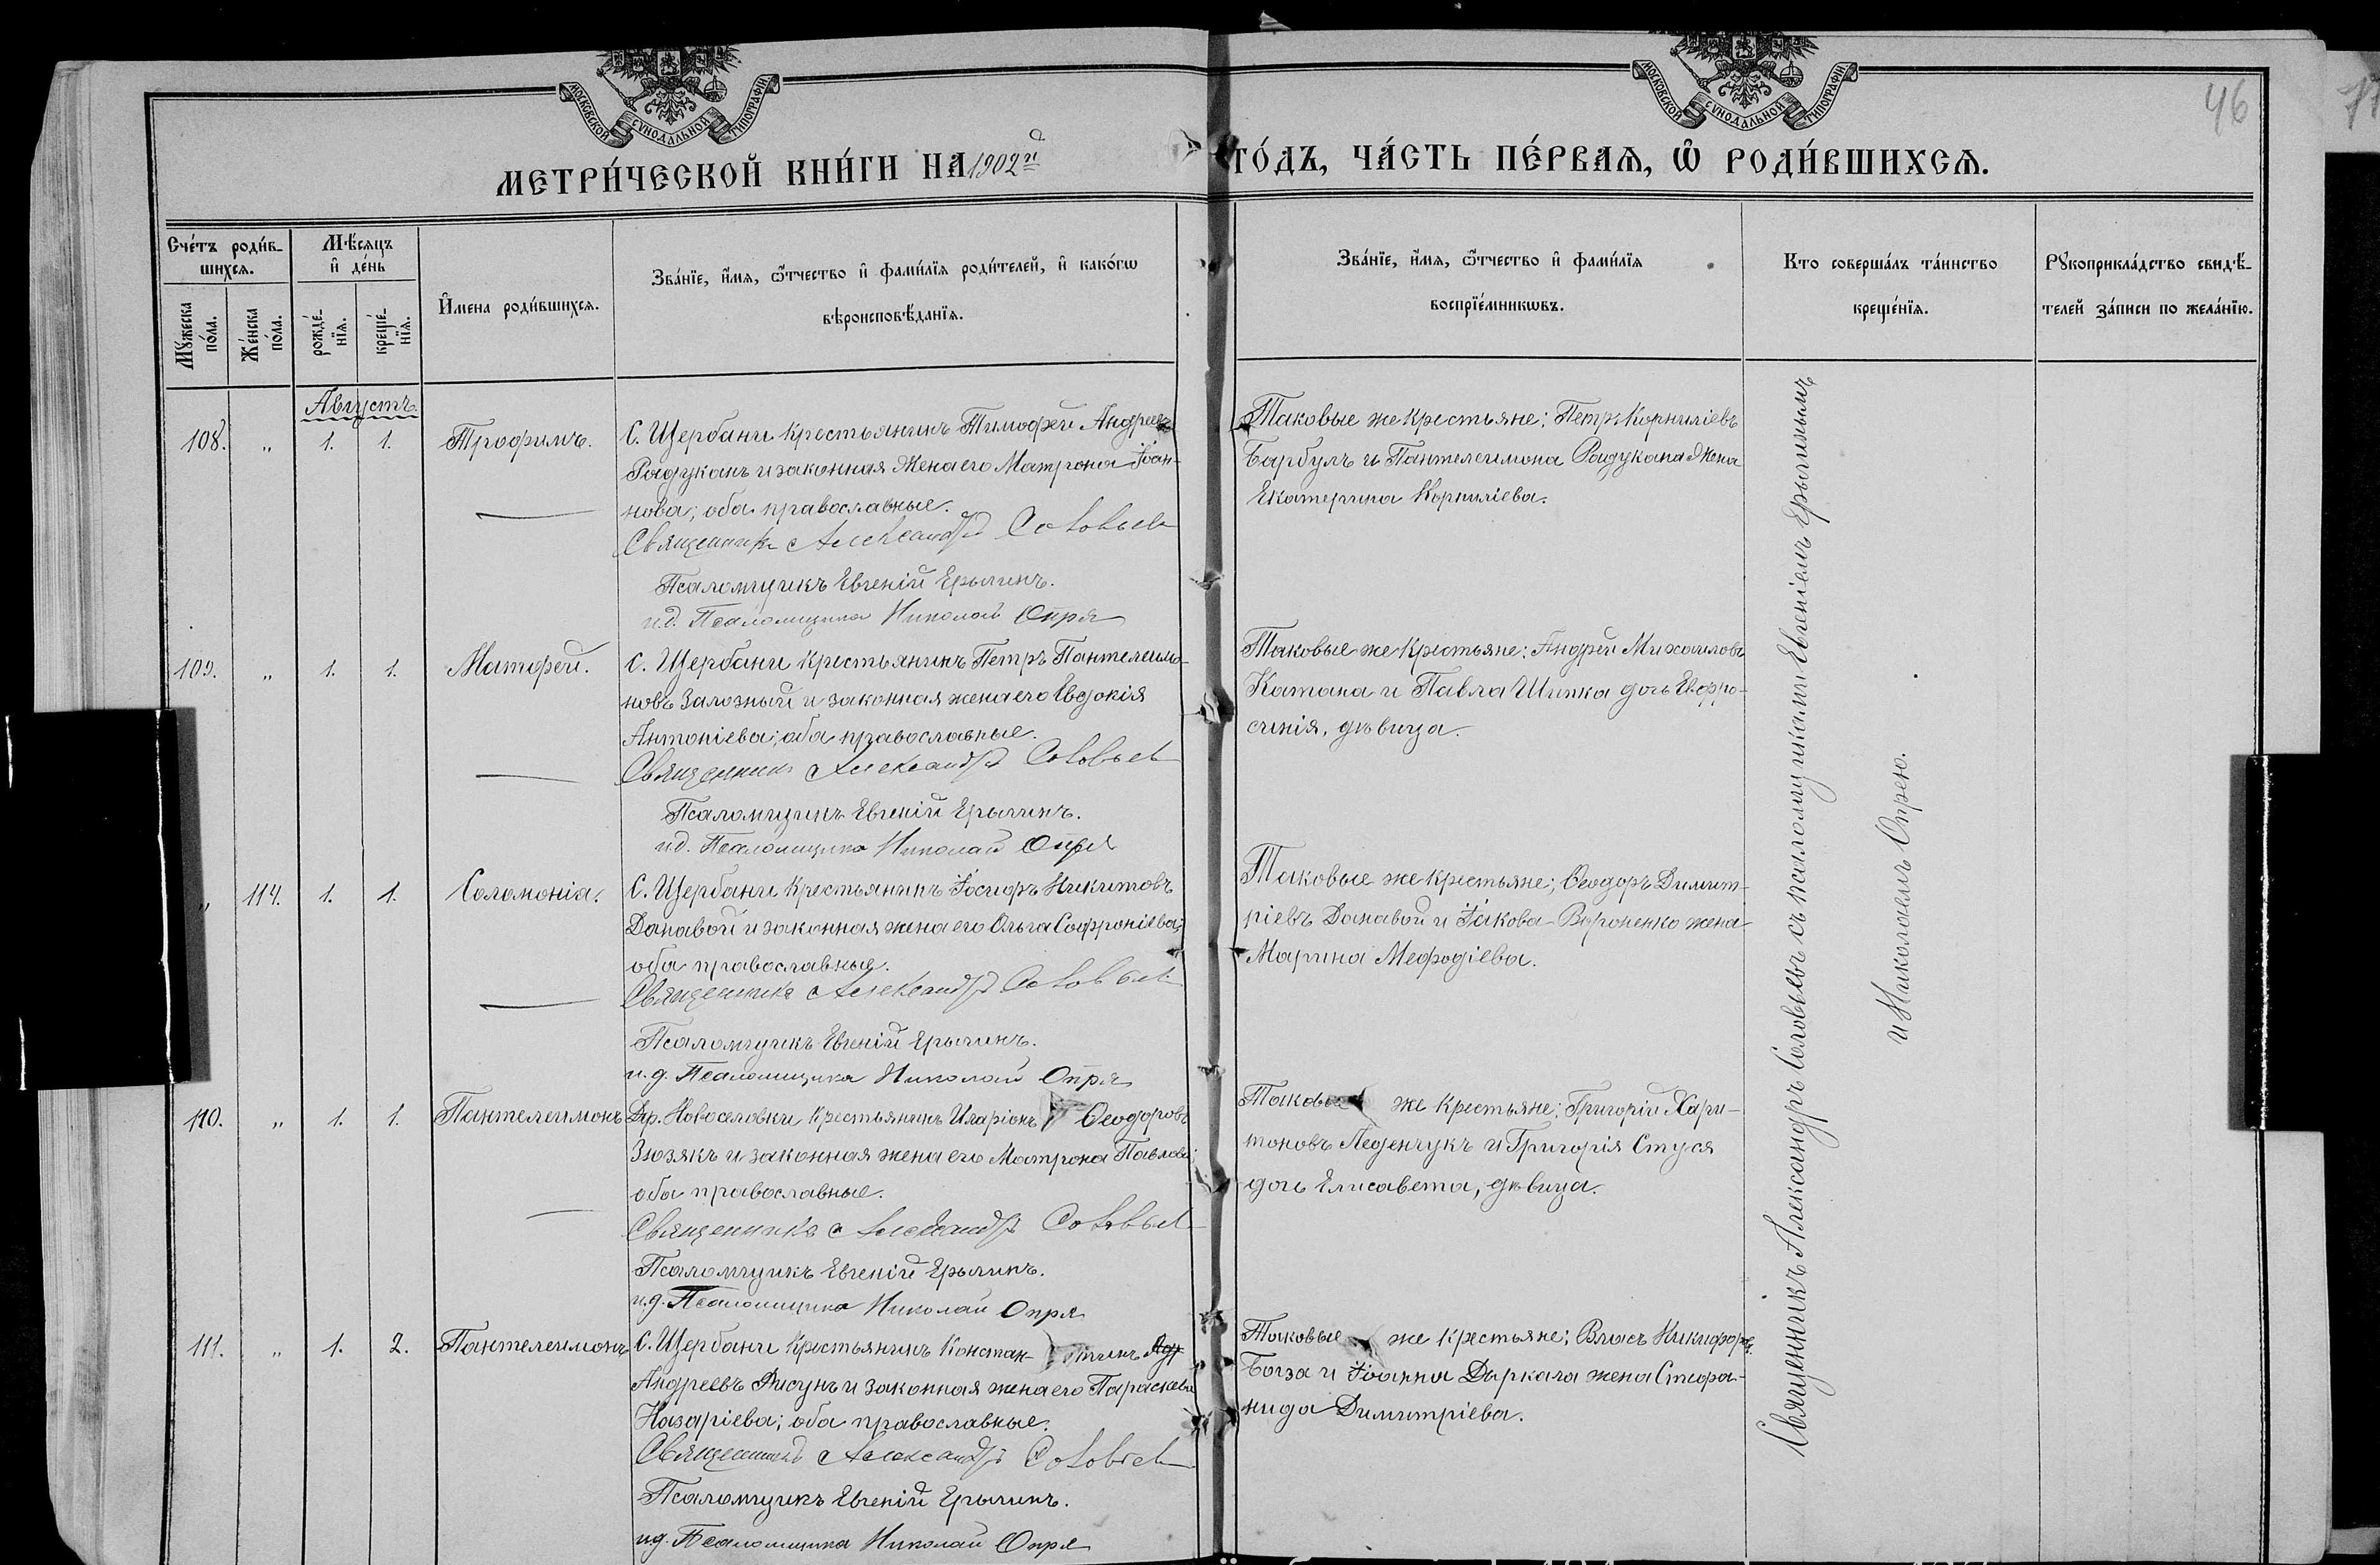 МОСКОВСКОЙ СѴНОДАЛЬНОЙ ТИПОГРАФІИ
МОСКОВСКОЙ СѴНОДАЛЬНОЙ ТИПОГРАФІИ
46
МЕТРИ́ЧЕСКОЙ КНИ́ГИ НА 1902й
ГО́ДЪ, ЧА́СТЬ ПЕ́РВАѦ, Ѡ҆ РОДИ́ВШИХСѦ.
Сче́тъ роди́в-
шихсѧ.
Мꙋ́жеска по́ла.
Же́нска по́ла.
Мѣ́сѧцъ
и҆ де́нь
рожде́-
нїѧ.
креще́-
нїѧ.
И҆мена роди́вшихсѧ.
Зва́нїе, и҆́мѧ, ѻ҆́тчество и҆ фами́лїѧ роди́телей, и҆ како́гѡ
вѣроисповѣ́данїѧ.
Зва́нїе, и҆́мѧ, ѻ҆́тчество и҆ фами́лїѧ
воспрїе́мникѡвъ.
Кто соверша́лъ та́инство
креще́нїѧ.
Рꙋкоприкла́дство свидѣ́-
телей за́писи по жела́нїю.
Августъ.
108. „ 1. 1. Трофимъ.
С. Щербани крестьянинъ Тимофей Андреевъ
Радуканъ и законная жена его Матрона Іоан-
нова; оба православные.
Священникъ Александръ Соловьевъ
Псаломщикъ Евгеній Ерыминъ.
и.д. Псаломщика Николай Опря
Таковые же крестьяне: Петръ Корниліевъ
Барбулъ и Пантелеимона Радукана жена
Екатерина Корниліева.
109. „ 1. 1. Матфей.
С. Щербани крестьянинъ Петръ Пантелеимо-
новъ Залозный и законная жена его Евдокія
Антоніева; оба православные.
Священникъ Александръ Соловьевъ
Псаломщикъ Евгеній Ерыминъ.
и.д. Псаломщика Николай Опря
Таковые же крестьяне: Андрей Михаиловъ
Катана и Павла Шипка дочь Евфро-
синія, дѣвица.
„ 114. 1. 1. Соломонія.
С. Щербани крестьянинъ Іосифъ Никитовъ
Данавой и законная жена его Ольга Софроніева;
оба православные.
Священникъ Александръ Соловьевъ
Псаломщикъ Евгеній Ерыминъ.
и.д. Псаломщика Николай Опря
Таковые же крестьяне; Ѳеодоръ Димит-
ріевъ Данавой и Іакова Вороненко жена
Марина Меѳодіева.
110. „ 1. 1. Пантелеимонъ
Др. Новоселовки крестьянинъ Иларіонъ Ѳеодоровъ
Зюзякъ и законная жена его Матрона Павлова;
оба православные.
Священникъ Александръ Соловьевъ
Псаломщикъ Евгеній Ерыминъ.
и.д. Псаломщика Николай Опря
Таковые же крестьяне; Григорій Хари-
тоновъ Леденчукъ и Григорія Стуся
дочь Елисавета, дѣвица.
111. „ 1. 2. Пантелеимонъ
С. Щербани крестьянинъ Констан-тинъ
Андреевъ и законная жена его Параскева
Назаріева; оба православные.
Священникъ Александръ Соловьевъ
Псаломщикъ Евгеній Ерыминъ.
и.д. Псаломщика Николай Опря
Таковые же крестьяне; Власъ Никифоровъ
Богза и Іоанна Даркача жена Стефа-
нида Димитріева.
Священникъ Александръ Соловьевъ съ псаломщиками Евгеніемъ Ерыминымъ
и Николаемъ Опрею.